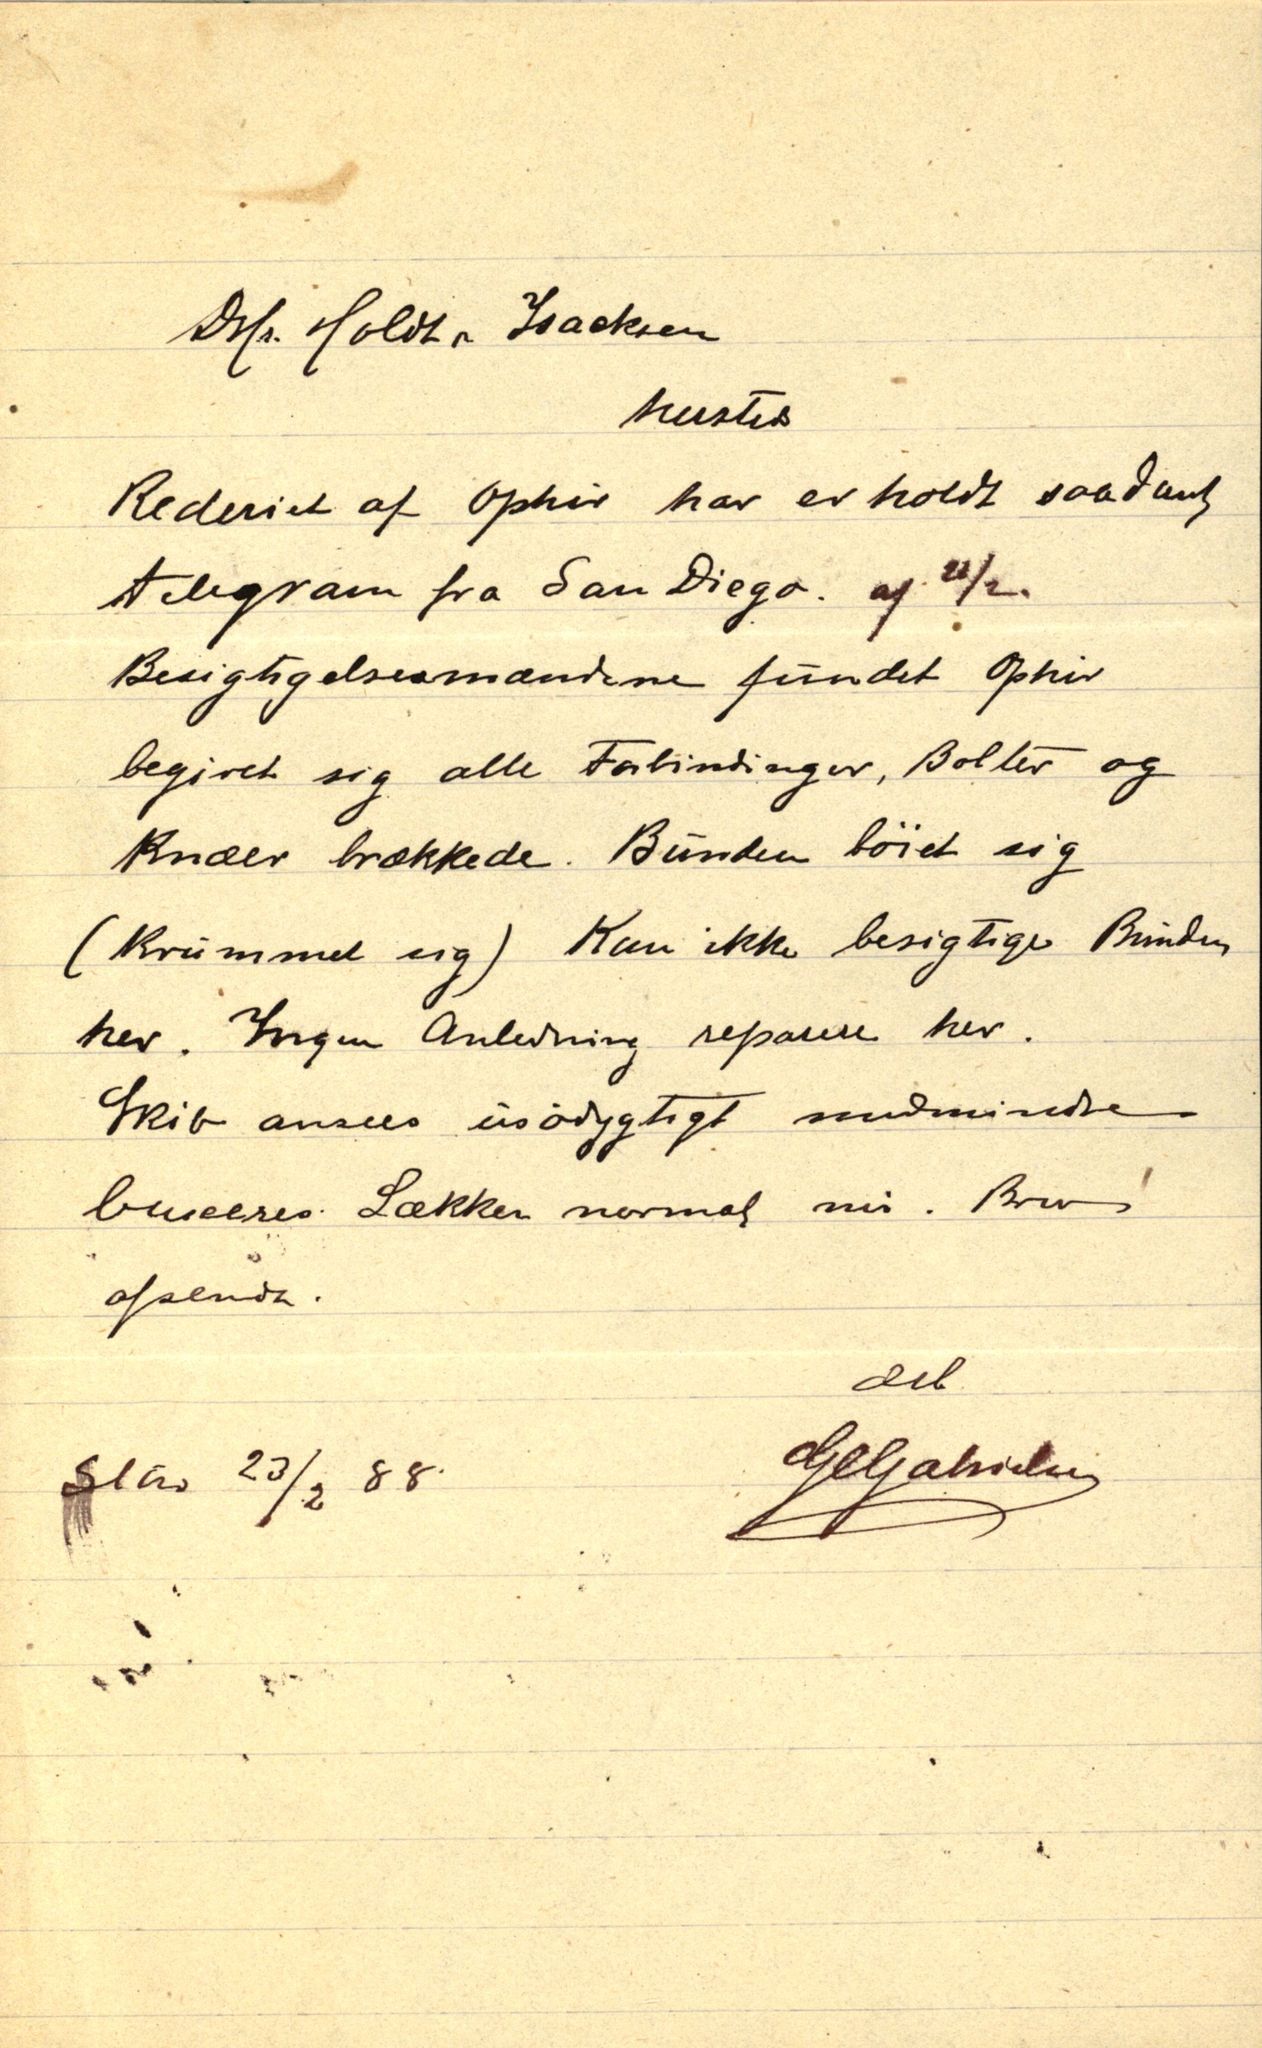 Dhr. Holdt & Isacksen
hersteds
Rederiet af Ophir har erholdt saadant
telegram fra San Diego. af 22/2.
Besigtigelsesmændene fundet Ophir
begivet sig alle Forbindinger, Bolter og
Knæer brækkede. Bunden böiet sig
(Krummet sig) Kan ikke besigtige Bunden
her. Ingen Anledning reparere her.
Skib ansees usödygtigt medmindre
bugseres. Lækken normal nu. Brev
afsendt.
Arb
GCGabrielsen
Stav 23/2 88.